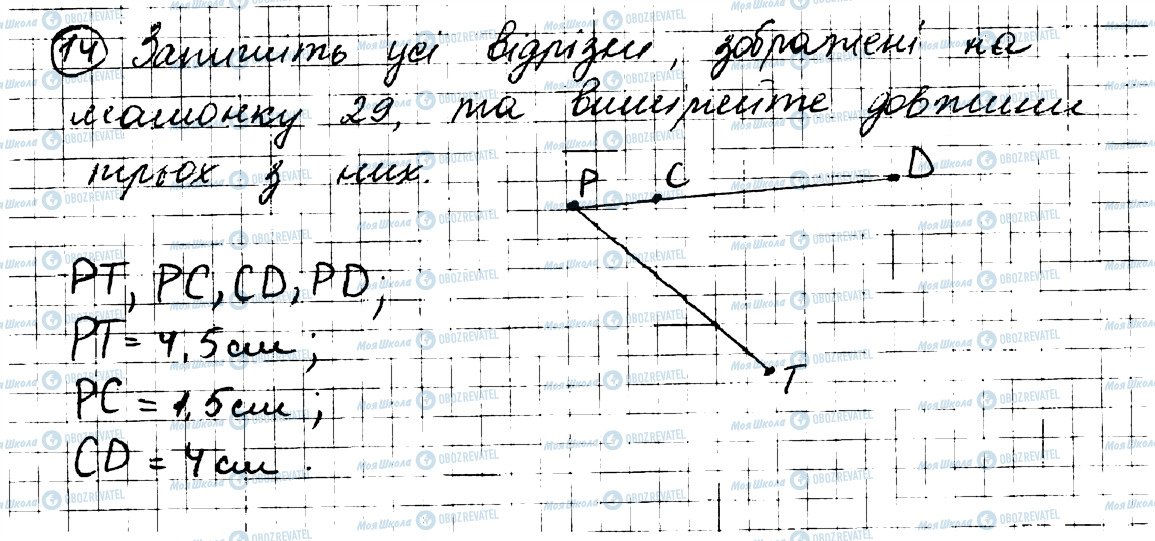 14 Запишіть усі відрізки, зображені на
малюнку 29, та виміряйте довжини
трьох з них.
P C D
T
PT, PC, CD, PD;
PT = 4,5 см;
PC = 1,5 см;
CD = 4 см.
Моя Школа OBOZREVATEL